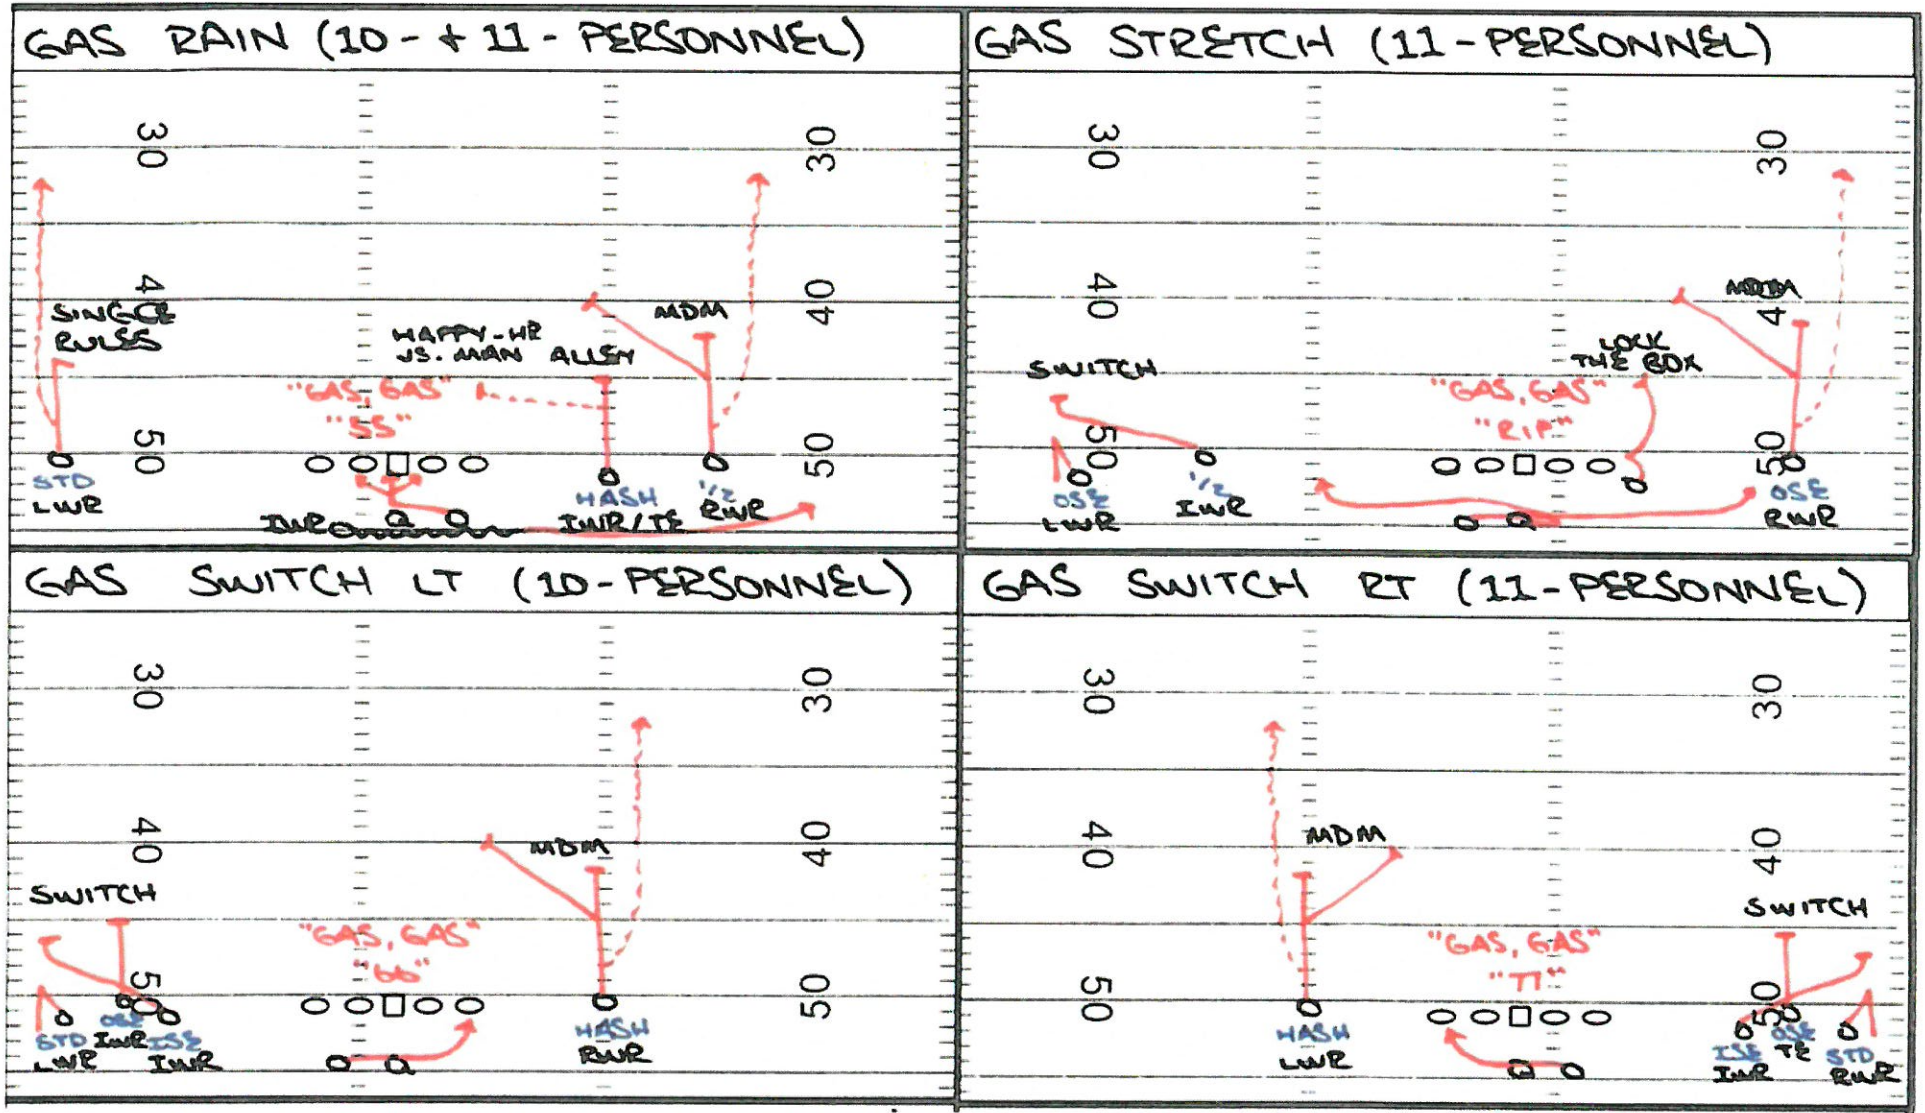 GAS RAIN (10- + 11-PERSONNEL)
30 30
40
SINGLE
RULES
4
MDM
HAPPY-HR
VS. MAN ALLEY
"GAS, GAS"
"55"
50 50
STD
LWR
IWR
Q
HASH
IWR/TE
1/2
RWR
GAS STRETCH (11-PERSONNEL)
30 30
40 4
MDM
LOCK
THE BOX
SWITCH
"GAS, GAS"
"RIP"
50 50
OSE
LWR
1/2
IWR
Q
OSE
RWR
GAS SWITCH LT (10-PERSONNEL)
30 30
40 40
MDM
SWITCH
"GAS, GAS"
"66"
50 50
STD
LWR
OSE
IWR
ISE
IWR
Q
HASH
RWR
GAS SWITCH RT (11-PERSONNEL)
30 30
40 40
MDM
SWITCH
"GAS, GAS"
"77"
50 50
HASH
LWR
Q
ISE
IWR
OSE
TE
STD
RWR